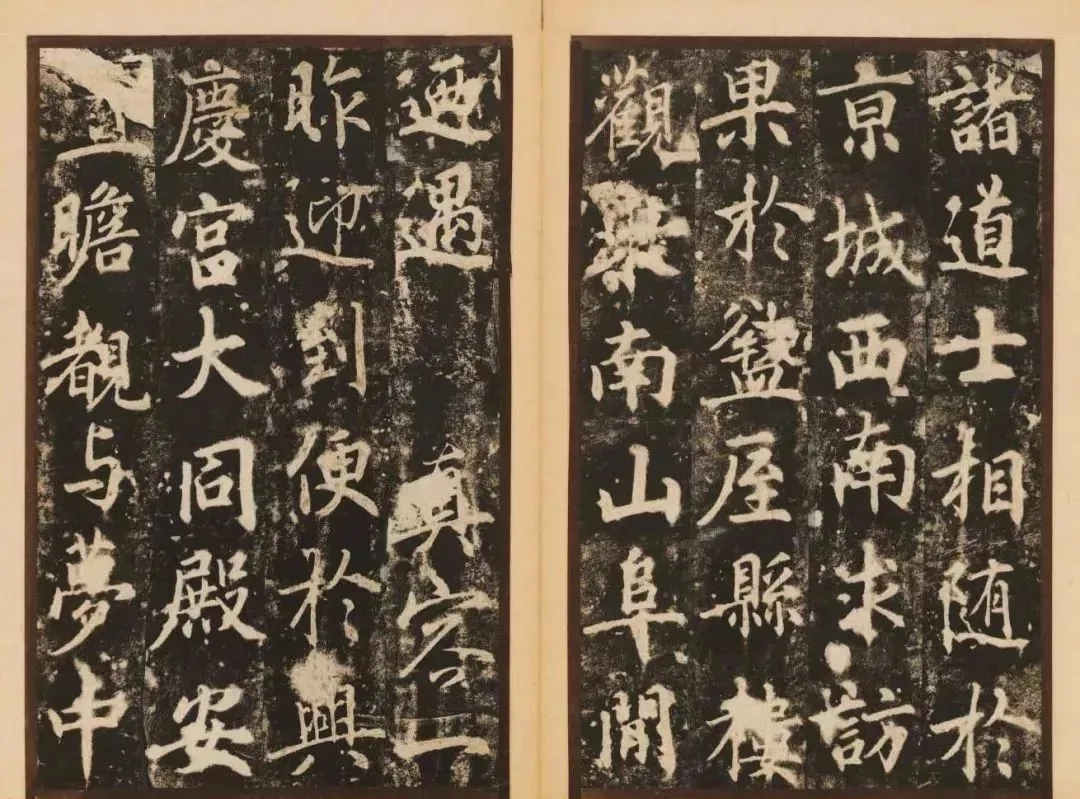 諸道士相随於
亰城西南求訪
果於盩厔縣樓
觀東南山阜閒
迺遇 真容一
昨迎到便於興
慶宮大同殿安
置瞻覩与夢中